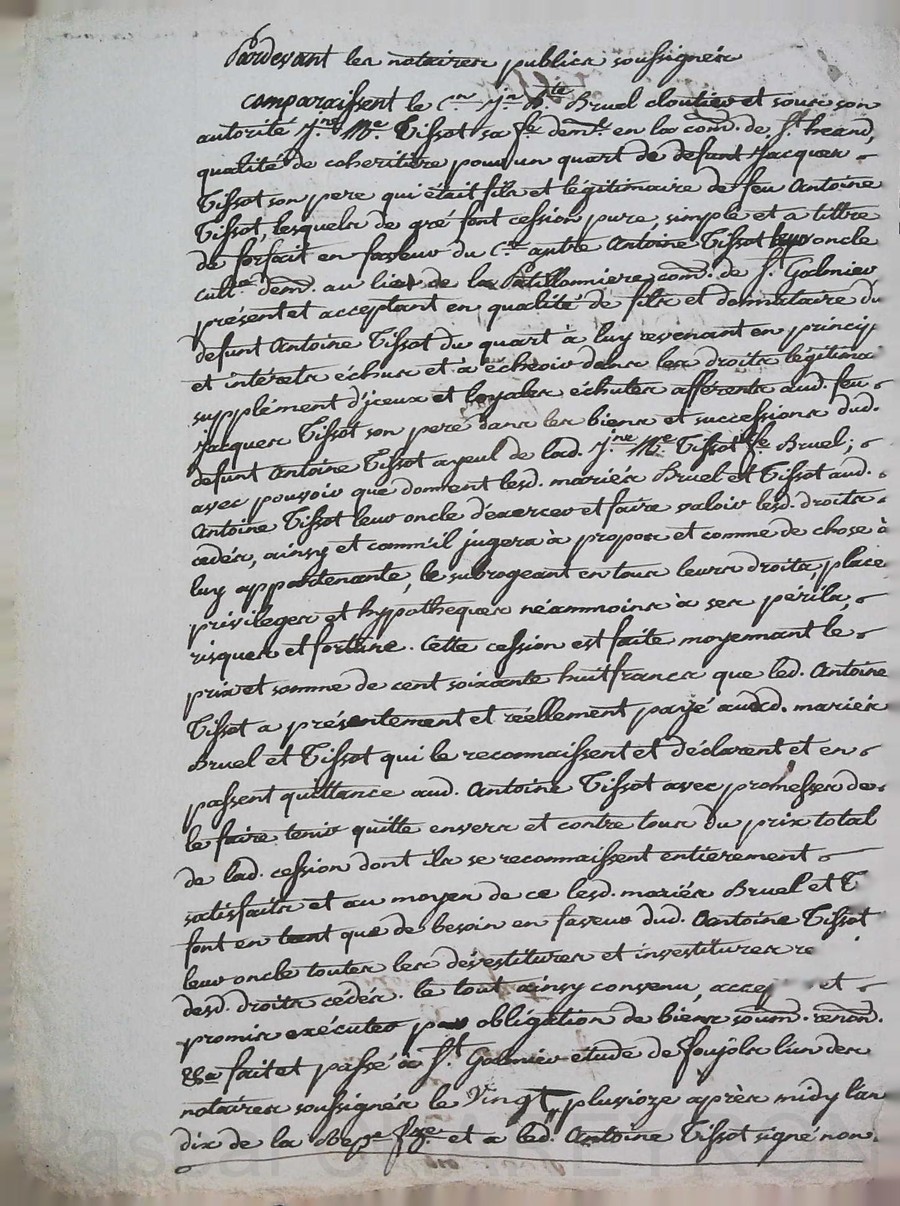 Pardevant les notaires publics soussignés
comparaissent le C.en J.n B.te Bruel cloutier et sous son
autorité J.ne M.e Tissot sa f.e dem.t en la com. de S.t heand,
qualité de coheritière pour un quart de defunt Jacques
Tissot son pere qui était fils et légitimaire de feu Antoine
Tissot, lesquels de gré font cession pure, simple et a tittre
de forfait en faveur du C.en autre Antoine Tissot leur oncle
cult.r dem.t au lieu de la com. de S.t Galmier
présent et acceptant en qualité de fils et donnataire du
defunt Antoine Tissot du quart à luy revenant en princip
et intérets échus et à échoir dans les droits légitima
supplément d'iceux et loyales échutes afférents aud. feu
Jacques Tissot son pere dans les biens et successions dud.
defunt Antoine Tissot ayeul de lad. J.ne M.e Tissot f.e Bruel;
avec pouvoir que donnent lesd. mariés Bruel et Tissot aud.
Antoine Tissot leur oncle d'exercer et faire valoir lesd. droits
cédés, ainsy et comm'il jugera à propos et comme de chose à
luy appartenante, le subrogeant en tous leurs droits, place
privileges et hypotheques néammoins à ses périls,
risques et fortune. Cette cession est faite moyennant le
prix et somme de cent soixante huit francs que led. Antoine
Tissot a présentement et réellement payé auxd. mariés
Bruel et Tissot qui le reconnaissent et déclarent et en
passent quittance aud. Antoine Tissot avec promesses de
le faire tenir quitte envers et contre tous du prix total
de lad. cession dont ils se reconnaissent entierement
satisfaits et au moyen de ce lesd. mariés Bruel et T
font en tant que de besoin en faveur dud. Antoine Tissot
leur oncle toutes les dévestitures et investitures re
desd. droits cédés. le tout ainsy convenu, accep et
promis exécuter par obligation de biens soum. renon.
&a fait et passé à S.t Galmier étude de Foujols l'un des
notaires soussignés le Vingt pluviose après midy l'an
dix de la Rep.e f.se et a led. Antoine Tissot signé non.